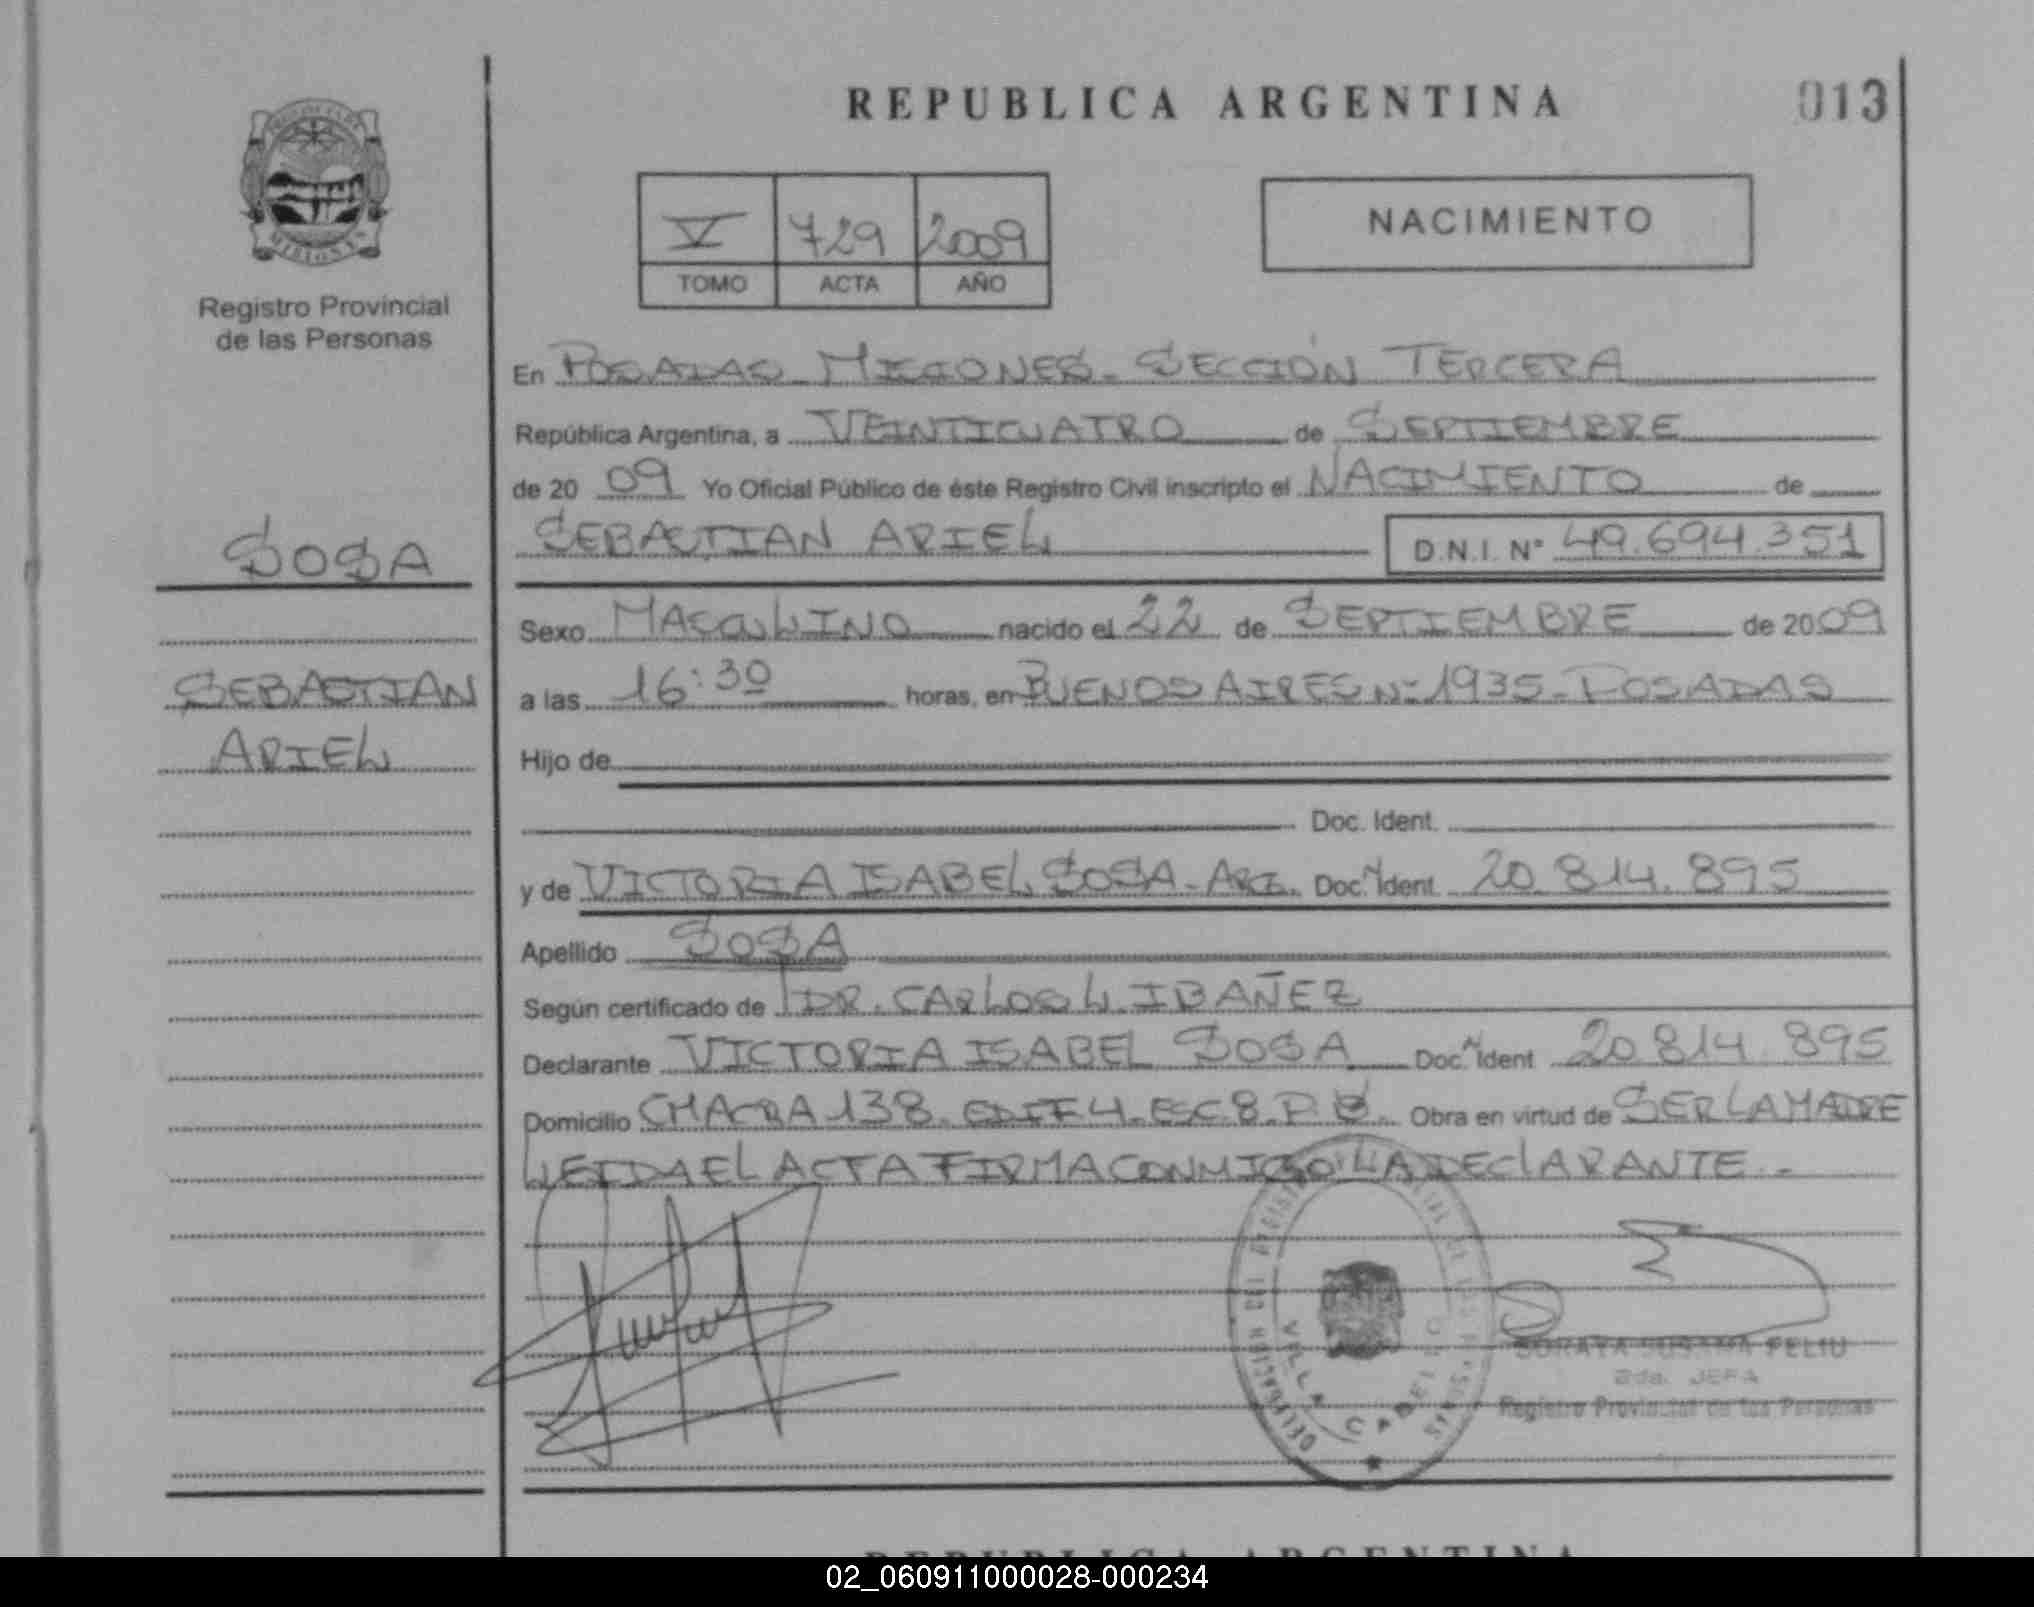 REPUBLICA ARGENTINA
013
MISIONES
Registro Provincial
de las Personas
V 729 2009
TOMO ACTA AÑO
NACIMIENTO
En POSADAS MISIONES - SECCIÓN TERCERA
República Argentina, a VEINTICUATRO de SEPTIEMBRE
de 20 09 Yo Oficial Público de éste Registro Civil inscripto el NACIMIENTO de
SEBASTIAN ARIEL D.N.I. N° 49.694.351
SOSA
SEBASTIAN
ARIEL
Sexo MASCULINO nacido el 22 de SEPTIEMBRE de 2009
a las 16:30 horas, en BUENOS AIRES Nº 1935 - POSADAS
Hijo de
Doc. Ident.
y de VICTORIA ISABEL SOSA - ARG. Doc. N Ident. 20.814.895
Apellido SOSA
Según certificado de DR. CARLOS L. IBAÑEZ
Declarante VICTORIA ISABEL SOSA Doc. N Ident. 20.814.895
Domicilio CHACRA 138. EDIF 4. ESC 8. P.B. Obra en virtud de SER LA MADRE
LEIDA EL ACTA FIRMA CONMIGO LA DECLARANTE.-
DELEGACION DEL REGISTRO
VILLA CABELLO
SORAYA SUSANA FELIU
2da. JEFA
Registro Provincial de las Personas
REPUBLICA ARGENTINA
02_060911000028-000234